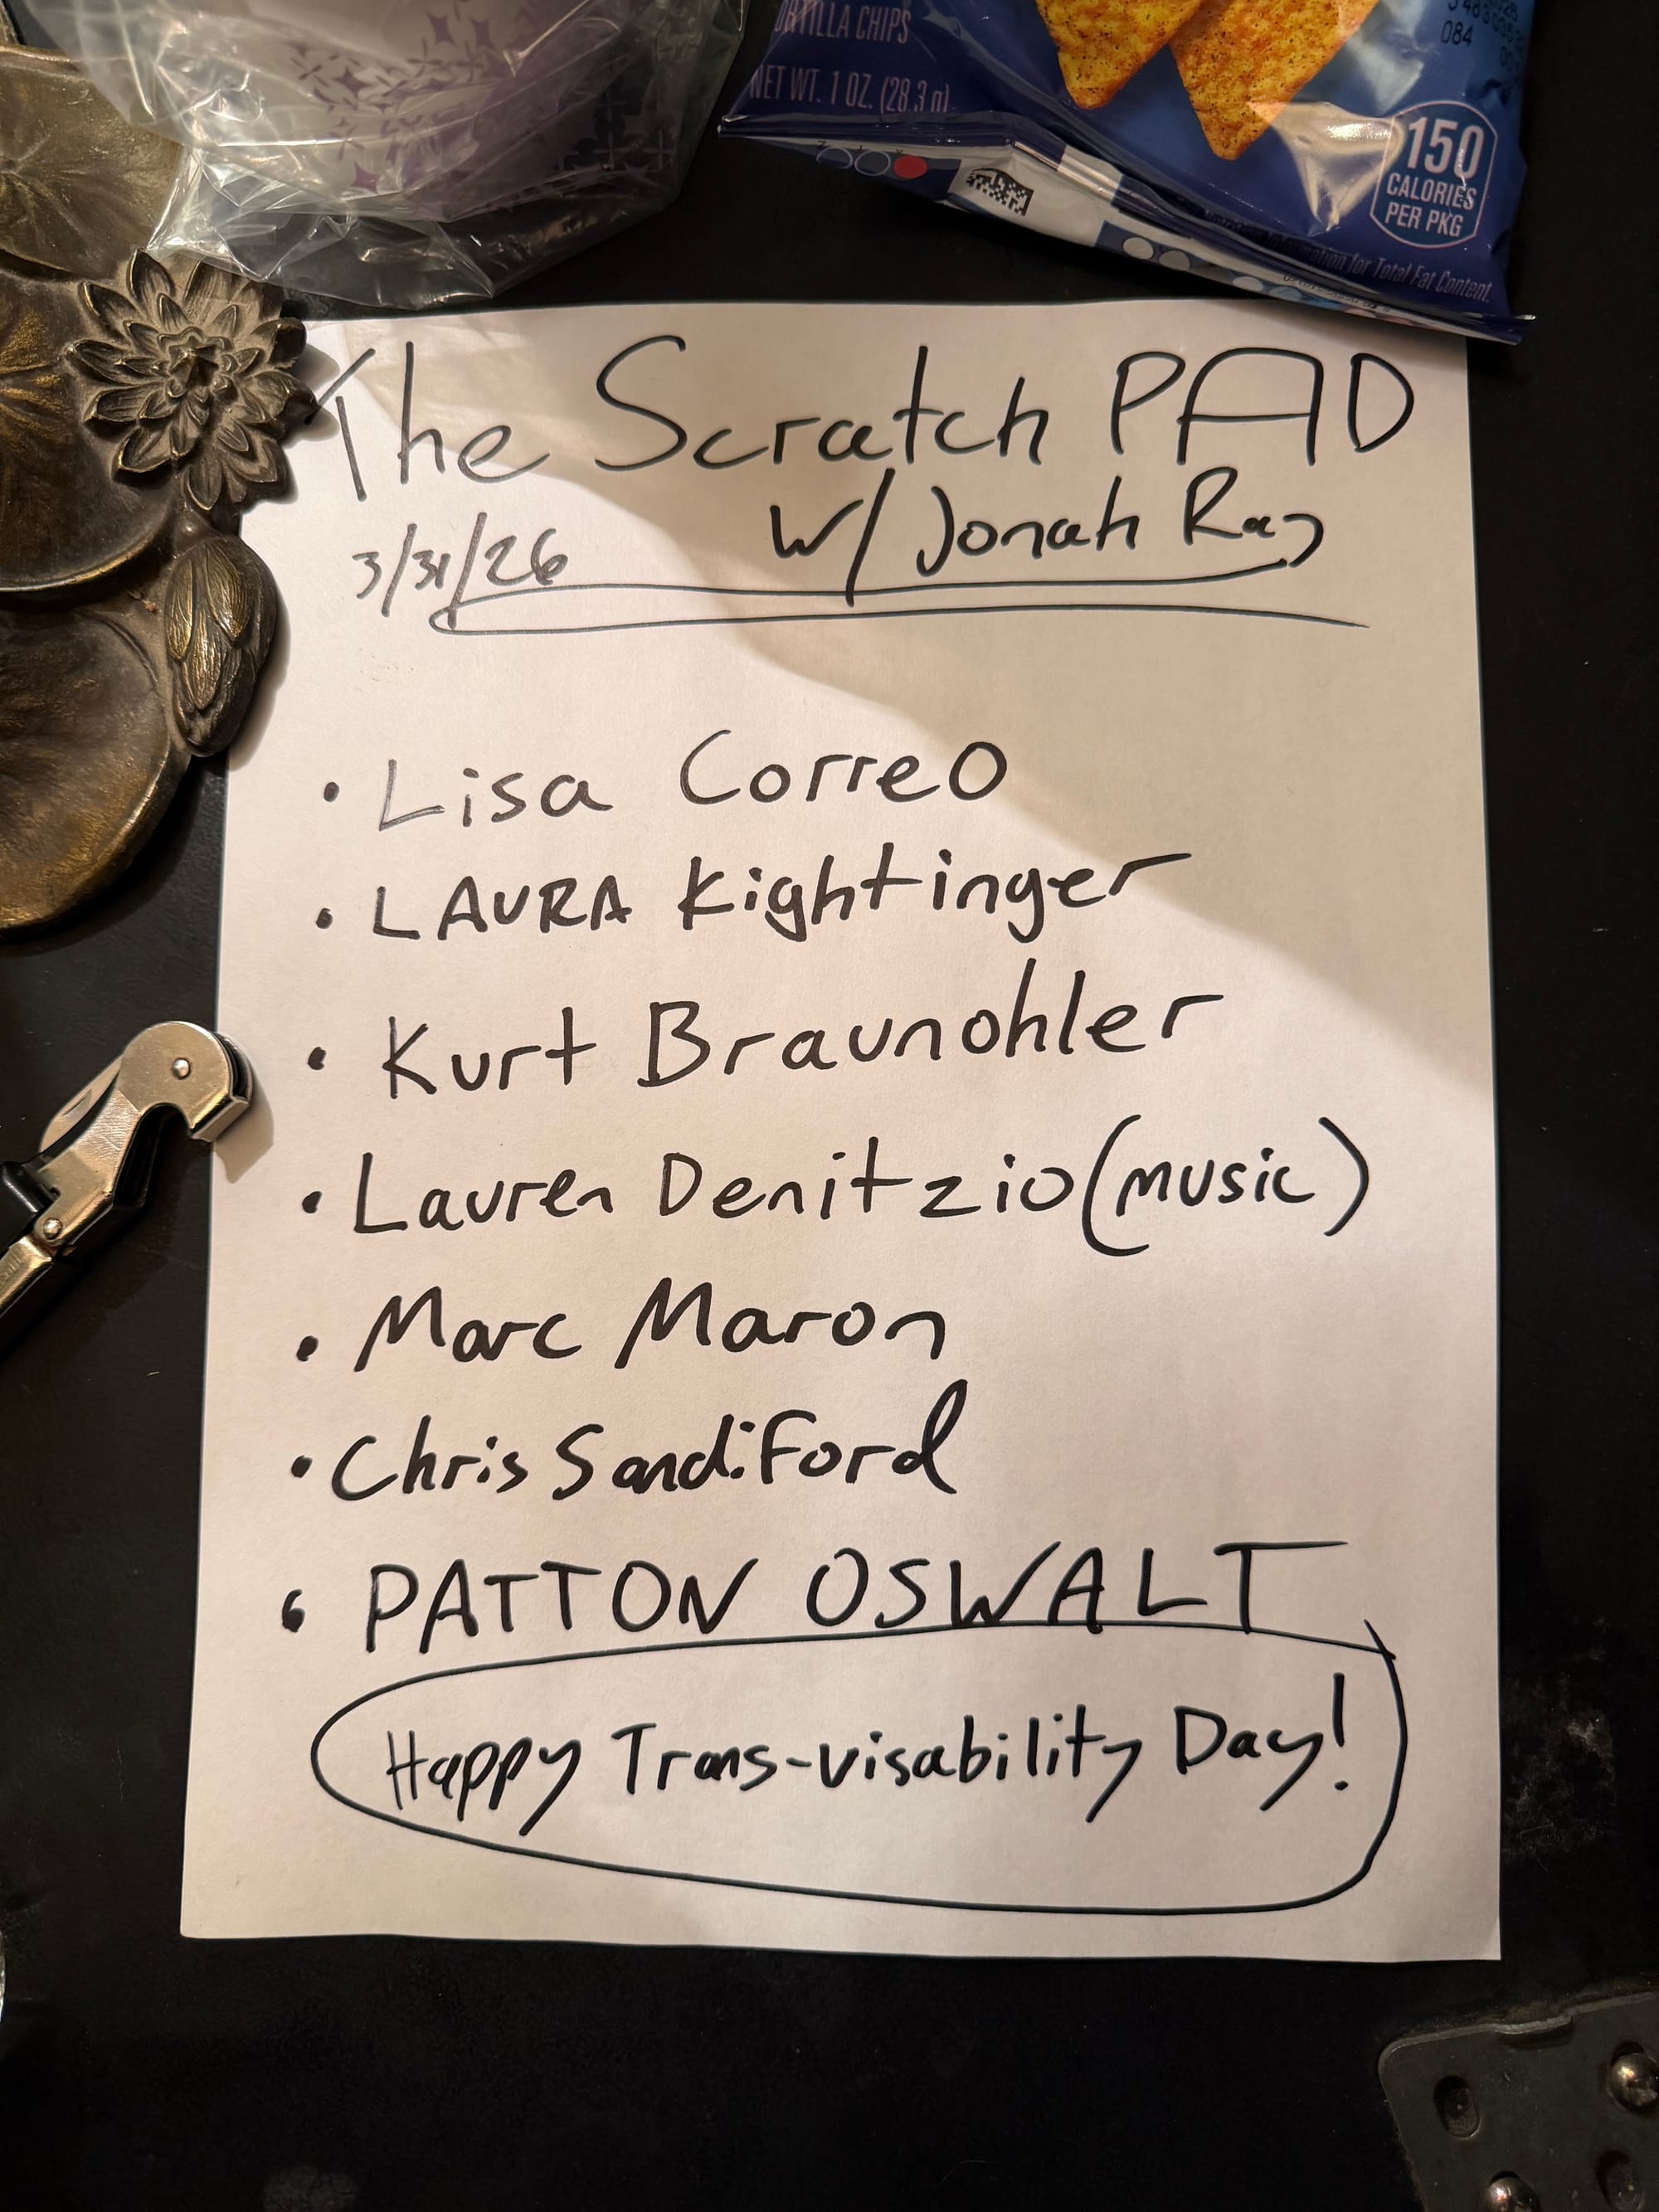 TORTILLA CHIPS
NET WT. 1 OZ. (28.3 g)
084
150
CALORIES
PER PKG
Information for Total Fat Content.
The Scratch PAD
W/ Jonah Ray
3/31/26
• Lisa Correo
• LAURA Kightinger
• Kurt Braunohler
• Lauren Denitzio (music)
• Marc Maron
• Chris Sandiford
• PATTON OSWALT
Happy Trans-visability Day!